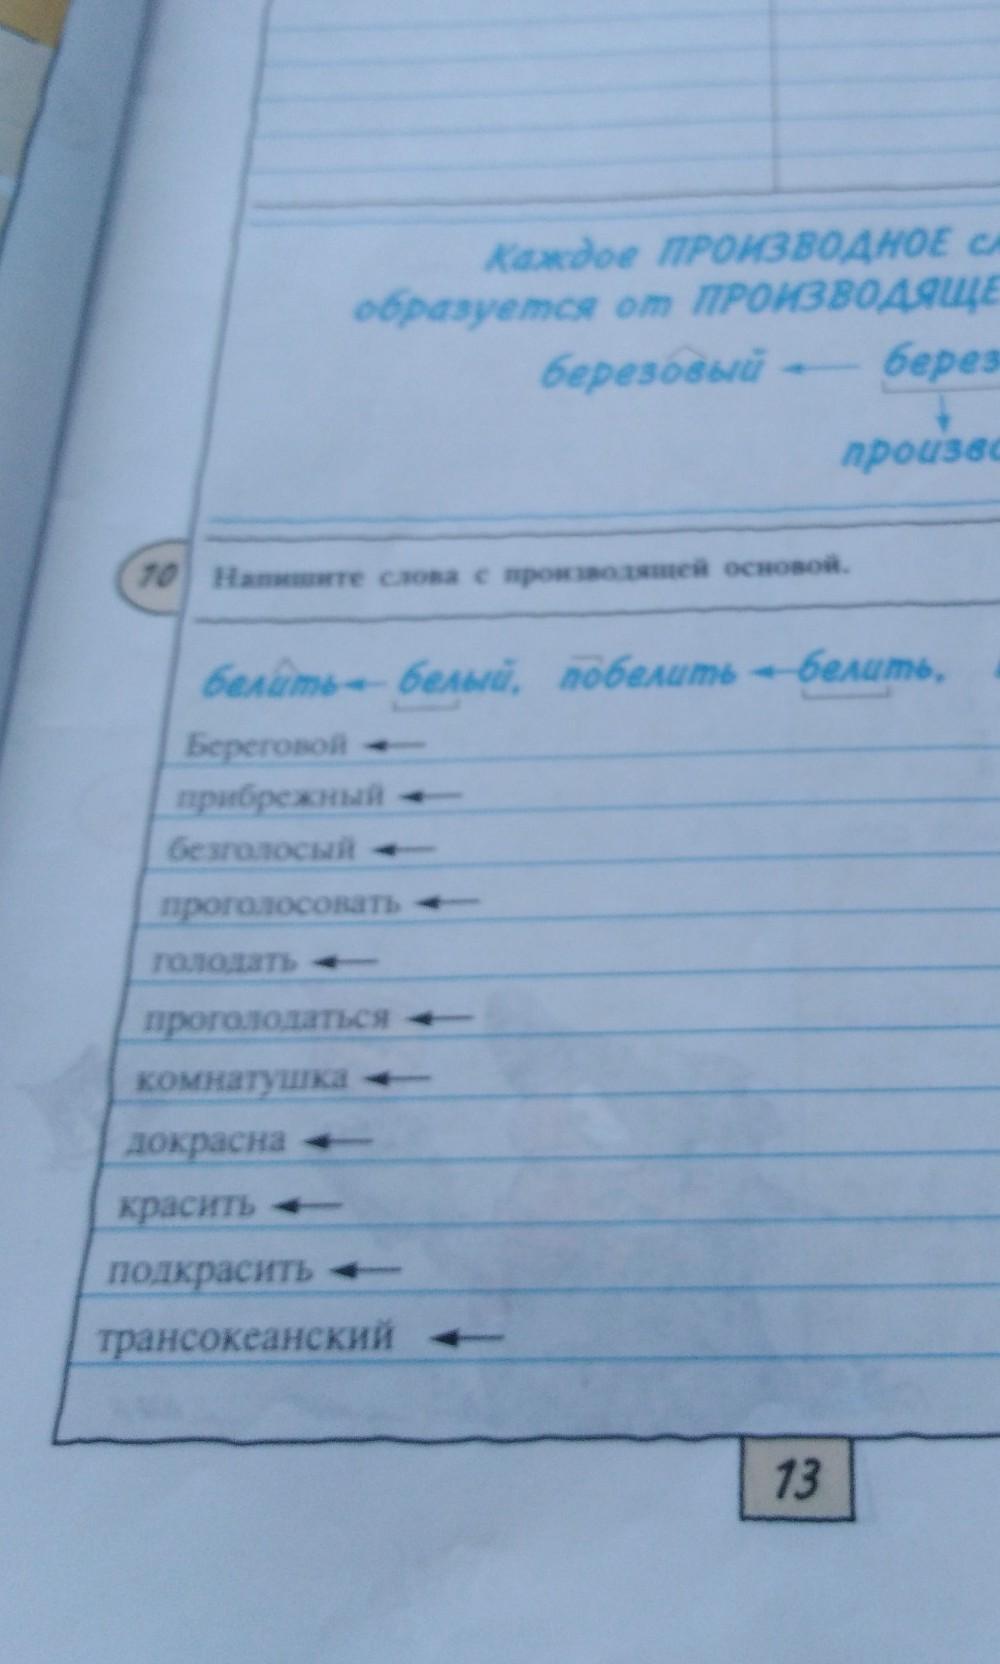 Каждое ПРОИЗВОДНОЕ
образуется от ПРОИЗВОДЯЩЕ
березовый ← берез
произво
10 Напишите слова с производящей основой.
белить ← белый, побелить ← белить,
Береговой ←
прибрежный ←
безголосый ←
проголосовать ←
голодать ←
проголодаться ←
комнатушка ←
докрасна ←
красить ←
подкрасить ←
трансокеанский ←
13